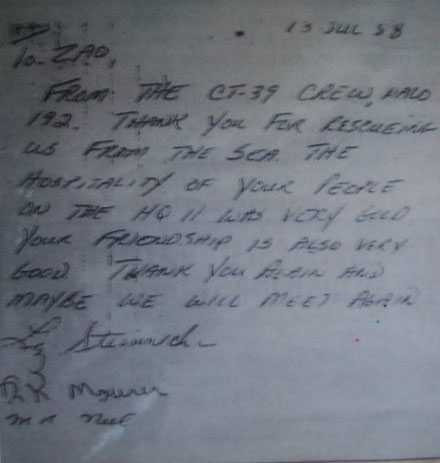 13 JUL 88
To ZAO,
FROM THE CT-39 CREW,
192. THANK YOU FOR RESCUEING
US FROM THE SEA. THE
HOSPITALITY OF YOUR PEOPLE
ON THE HQ 11 WAS VERY GOOD
YOUR FRIENDSHIP IS ALSO VERY
GOOD THANK YOU AGAIN AND
MAYBE WE WILL MEET AGAIN